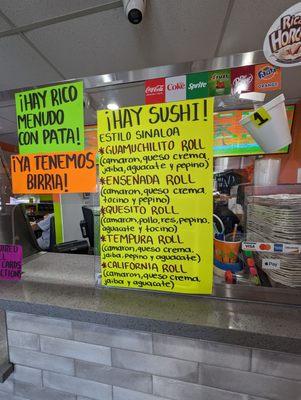 ¡HAY RICO
MENUDO
CON PATA!
¡YA TENEMOS
BIRRIA!
¡HAY SUSHI!
ESTILO SINALOA
*GUAMUCHILITO ROLL
(camaron, queso crema,
jaiba, aguacate, tocino
y pepino)
*ENSEÑADA ROLL
(camaron, queso crema,
y pepino)
*QUESITO ROLL
(camaron, pollo, res, pepino,
aguacate y tocino)
*TEMPURA ROLL
(camaron, queso crema,
jaiba y aguacate)
*CALIFORNIA ROLL
(camaron, queso crema,
jaiba y aguacate)
Coca-Cola
Coke
Sprite
Fanta
VISA
Pay